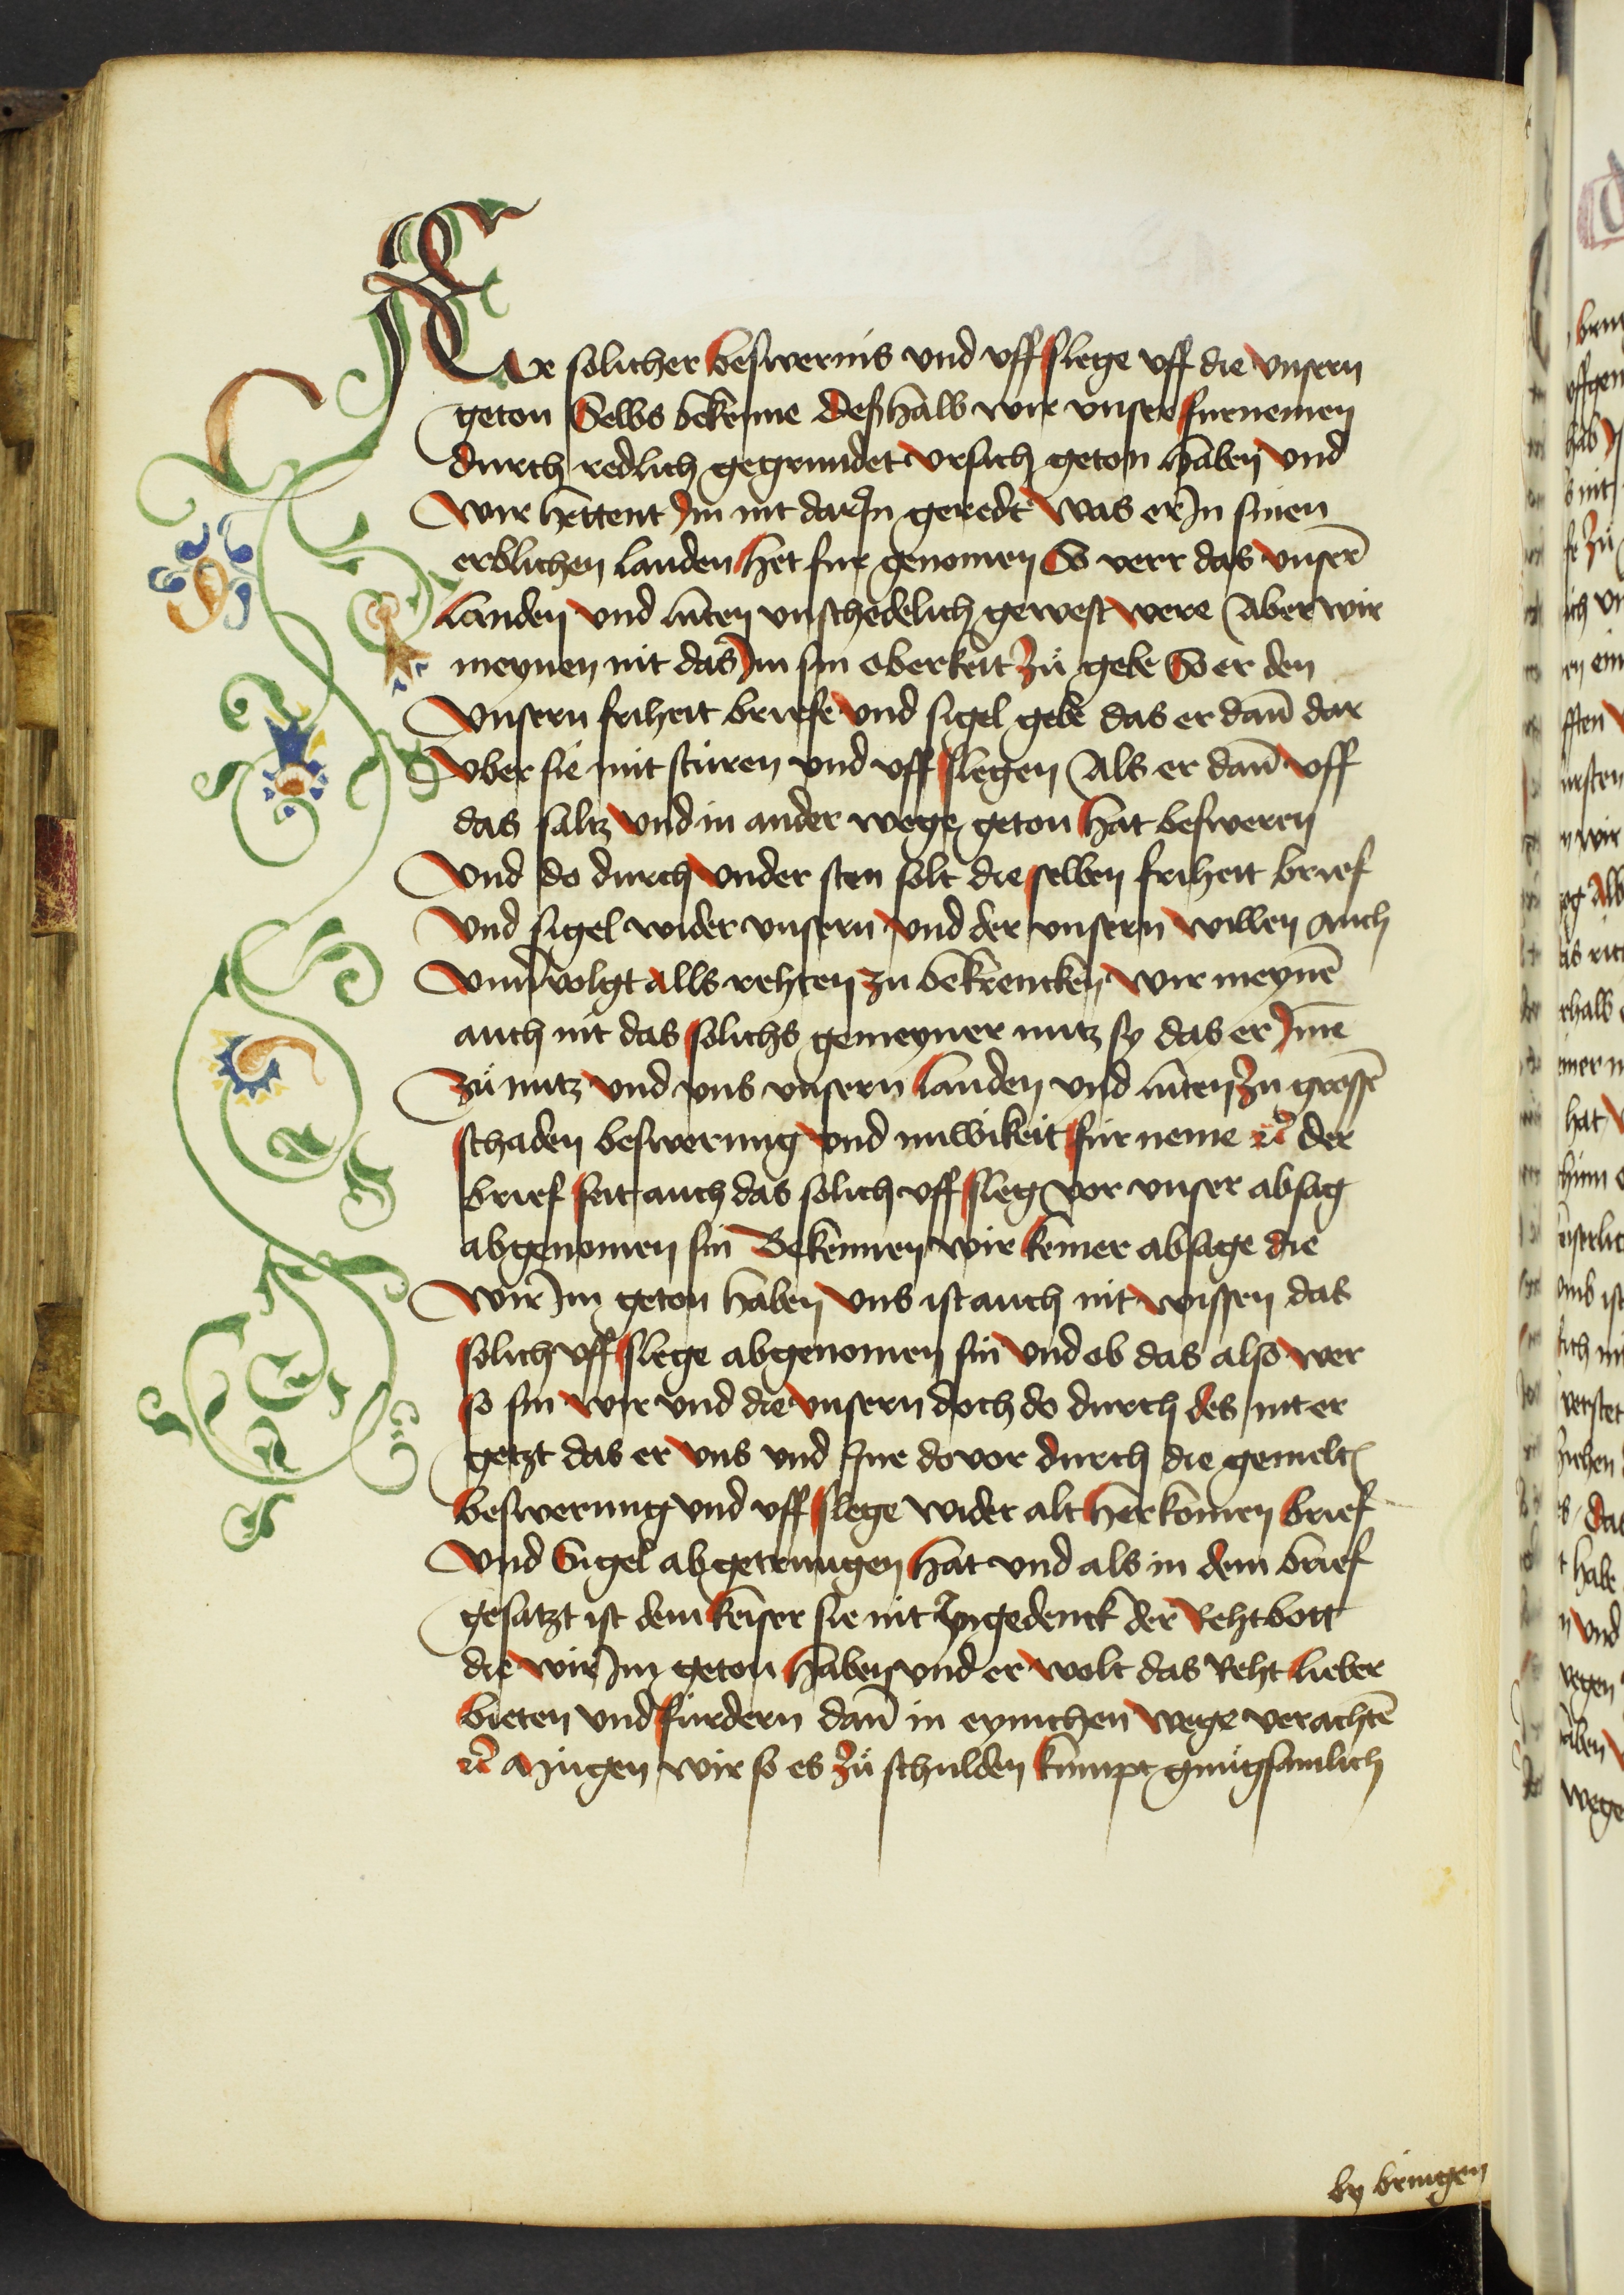 Er solicher beswernis vnd vff slege vff die vnsern
geton Selbs bekenne deßhalb wir vnser furnemen
durch redlich gegrundet vrsach geton haben vnd
wir hettent Im nit dar In geredt was er In sinen
erblichen landen het fur genomen So verr das vnserē
landen vnd luten vnschedelich gewest were Aber wir
meynen nit das Im sin oberkeit zů gebe So er den
vnsern friheit briefe vnd sigel gebe das er dañ dar
vber sie mit stüren vnd vff slegen Als er dañ vff
das saltz vnd in ander wege geton hat besweren
vnd do durch vnder sten solt die selben friheit brief
vnd sigel wider vnsern vnd der vnsern willen auch
vnervolgt alls rehten zu bekrencken wir meynē
auch nit das solichs gemeyner nutz sy das er Ime
zů nutz vnd vns vnsern landen vnd luten zu grossē
schaden beswerung vnd vnwikeit für neme ꝛc̃ der
brief seit auch das solich vff sleg vor vnser absag
abgenomen sin Bekennen wir keiner absage die
wir Im geton haben vns ist auch nit wissen das
solich vff slege abgenomen sin vnd ob das also wer
so sin wir vnd die vnsern doch do durch des nit er
getzt das er vns vnd Ine do vor durch die gemelt
beswerung vnd vff slege wider alt herkomen brief
vnd Sigel abgetrungen hat vnd als in dem brief
gesatzt ist dem keiser sie nit Ingedenck der Rehtbott
die wir Im geton haben vnd er wolt das Reht lieber
bieten vnd furdern dañ in eynichen wege verachtē
ꝛc̃ Mügen wir so es zů schulden kumpt gnůgsamlich
by bringen